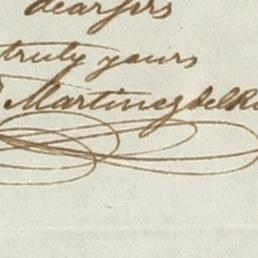 dear sirs
truly yours
Martinez del Ri